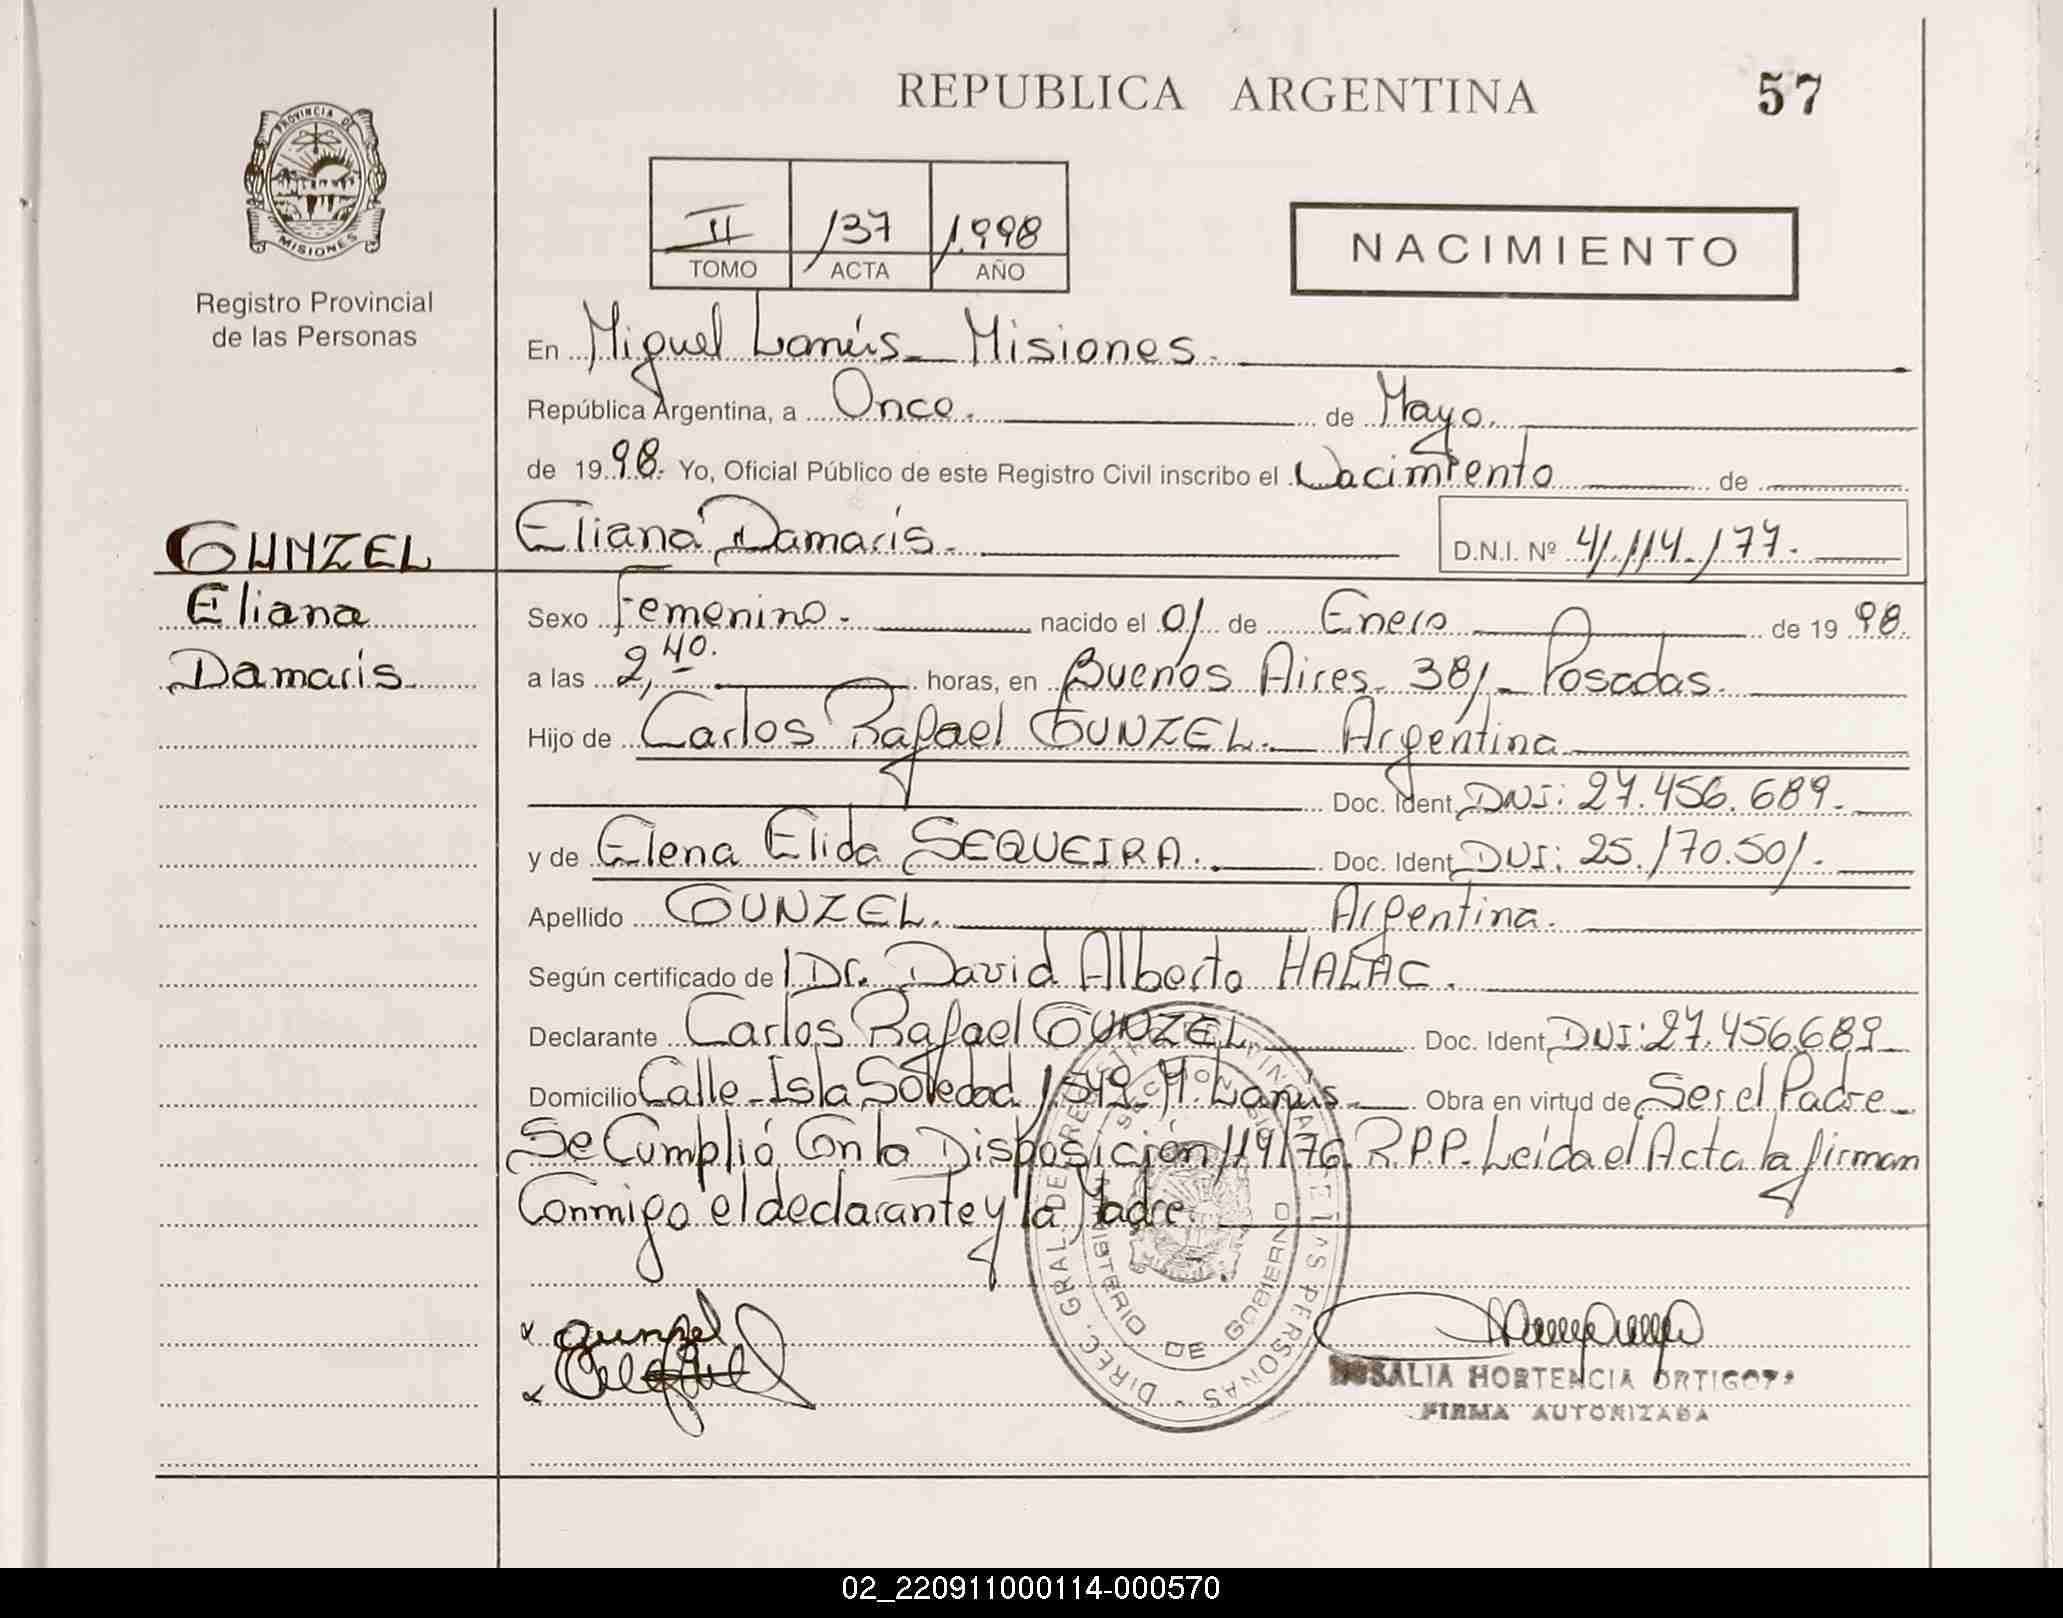 REPUBLICA ARGENTINA
57
PROVINCIA DE MISIONES
Registro Provincial
de las Personas
II 137 1.998
TOMO ACTA AÑO
NACIMIENTO
En Miguel Lanús - Misiones.
República Argentina, a Once. de Mayo.
de 1998. Yo, Oficial Público de este Registro Civil inscribo el Nacimiento de
GUNZEL
Eliana
Damaris
Eliana Damaris. D.N.I. Nº 41.114.177.
Sexo Femenino. nacido el 01 de Enero de 1998.
a las 2,40. horas, en Buenos Aires 381 - Posadas.
Hijo de Carlos Rafael GUNZEL. Argentina
Doc. Ident. DNI: 27.456.689.
y de Elena Elida SEQUEIRA. Doc. Ident. DNI: 25.170.501.
Apellido GUNZEL. Argentina.
Según certificado de Dr. David Alberto HALAC.
Declarante Carlos Rafael GUNZEL Doc. Ident. DNI: 27.456689
Domicilio Calle Isla Soledad 1549 M. Lanús. Obra en virtud de Ser el Padre
Se Cumplió Con la Disposición 119/76. R.P.P. Leída el Acta la firman
Conmigo el declarante y la Madre.
DIREC. GRAL. DE PERSONAS
MINISTERIO DE GOBIERNO
Gunzel
ROSALIA HORTENCIA
FIRMA AUTORIZADA
02_220911000114-000570